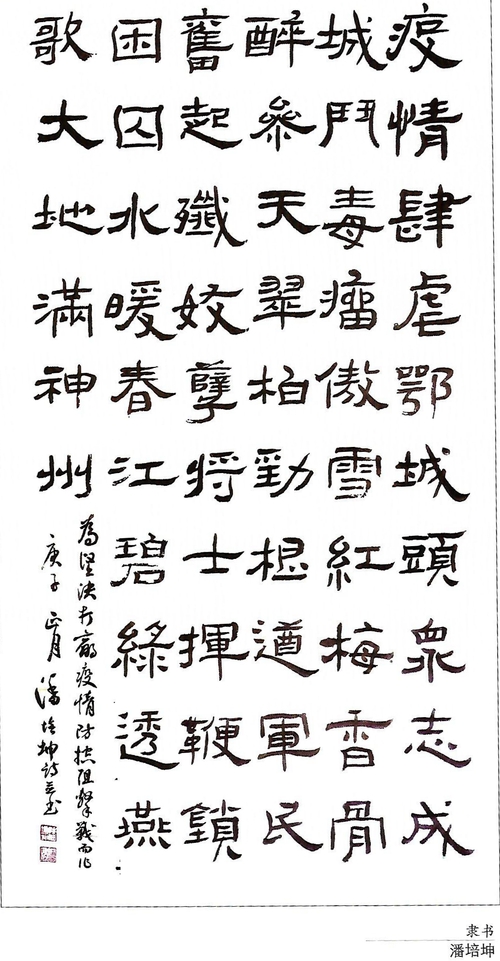 疫情肆虐鄂城頭衆志成
城鬥毒瘤傲雪紅梅香骨
醉參天翠柏勁根遒軍民
奮起殲妖孽將士揮鞭鎖
困囚水暖春江碧綠透燕
歌大地滿神州
為堅决打贏疫情防控阻擊戰而作
庚子正月潘培坤詩並书
隶书
潘培坤